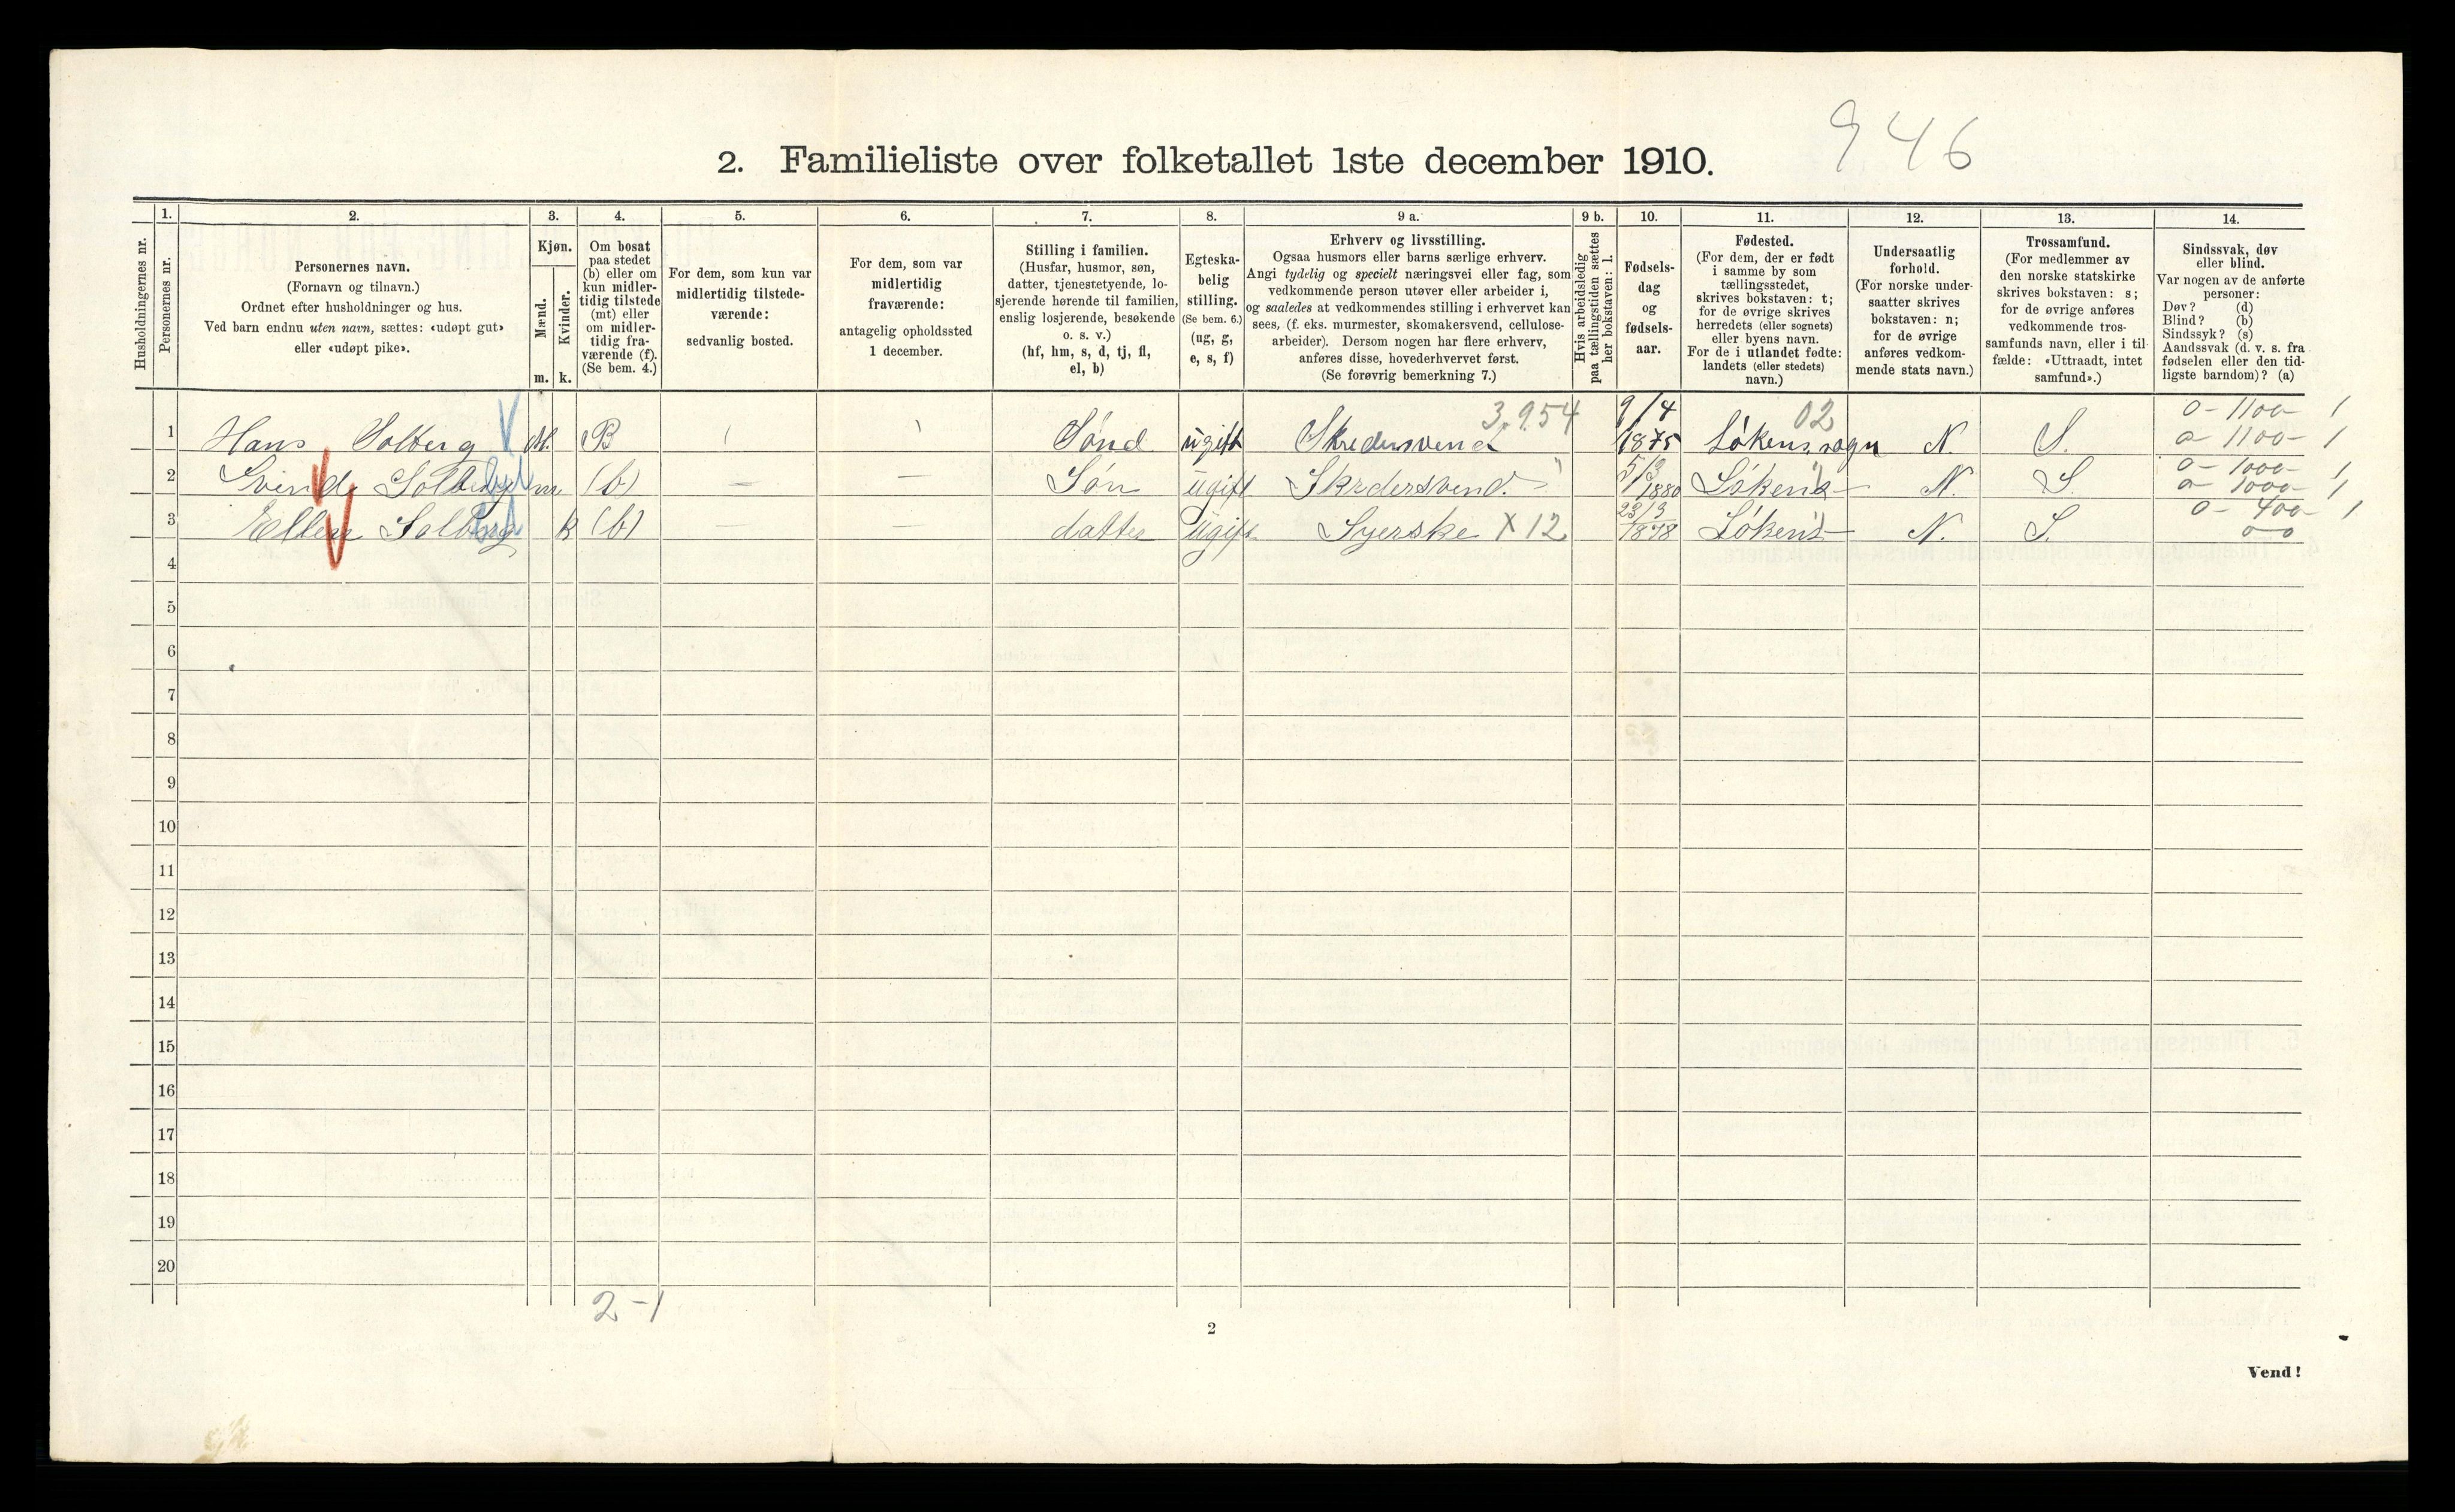 946
2. Familieliste over folketallet 1ste december 1910.
Husholdningernes nr.
1.
Personernes nr.
2.
Personernes navn.
(Fornavn og tilnavn.)
Ordnet efter husholdninger og hus.
Ved barn endnu uten navn, sættes: «udøpt gut»
eller «udøpt pike».
3.
Kjøn.
Mænd.
Kvinder.
m. k.
4.
Om bosat
paa stedet
(b) eller om
kun midler-
tidig tilstede
(mt) eller
om midler-
tidig fra-
værende (f).
(Se bem. 4.)
5.
For dem, som kun var
midlertidig tilstede-
værende:
sedvanlig bosted.
6.
For dem, som var
midlertidig
fraværende:
antagelig opholdssted
1 december.
7.
Stilling i familien.
(Husfar, husmor, søn,
datter, tjenestetyende, lo-
sjerende hørende til familien,
enslig losjerende, besøkende
o. s. v.)
(hf, hm, s, d, tj, fl,
el, b)
8.
Egteska-
belig
stilling.
(Se bem. 6.)
(ug, g,
e, s, f)
9 a.
Erhverv og livsstilling.
Ogsaa husmors eller barns særlige erhverv.
Angi tydelig og specielt næringsvei eller fag, som
vedkommende person utøver eller arbeider i,
og saaledes at vedkommendes stilling i erhvervet kan
sees, (f. eks. murmester, skomakersvend, cellulose-
arbeider). Dersom nogen har flere erhverv,
anføres disse, hovederhvervet først.
(Se forøvrig bemerkning 7.)
9 b.
Hvis arbeidsledig
paa tællingstiden sættes
her bokstaven: l.
10.
Fødsels-
dag
og
fødsels-
aar.
11.
Fødested.
(For dem, der er født
i samme by som
tællingsstedet,
skrives bokstaven: t;
for de øvrige skrives
herredets (eller sognets)
eller byens navn.
For de i utlandet fødte:
landets (eller stedets)
navn.)
12.
Undersaatlig
forhold.
(For norske under-
saatter skrives
bokstaven: n;
for de øvrige
anføres vedkom-
mende stats navn.)
13.
Trossamfund.
(For medlemmer av
den norske statskirke
skrives bokstaven: s;
for de øvrige anføres
vedkommende tros-
samfunds navn, eller i til-
fælde: «Uttraadt, intet
samfund».)
14.
Sindssvak, døv
eller blind.
Var nogen av de anførte
personer:
Døv? (d)
Blind? (b)
Sindssyk? (s)
Aandssvak (d. v. s. fra
fødselen eller den tid-
ligste barndom)? (a)
3.954 9/4 02 0 - 1100 - 1
1 Hans Solberg M. B Sønd ugift Skredersvend 1875 Løkens sogn N. S. 0 - 1100 - 1
5/3 0 - 1000 - 1
2 Solberg m (b) — — Søn ugift Skredersvend. 1880 Løkens N. S. 0 - 1000 - 1
23/3 0 - 400 - 1
3 Ellen Solberg k (b) — — datter ugift Syerske X 12 1878 Løkens N. S. 0 - 0
4
5
6
7
8
9
10
11
12
13
14
15
16
17
18
19
20
2 - 1
2
Vend!